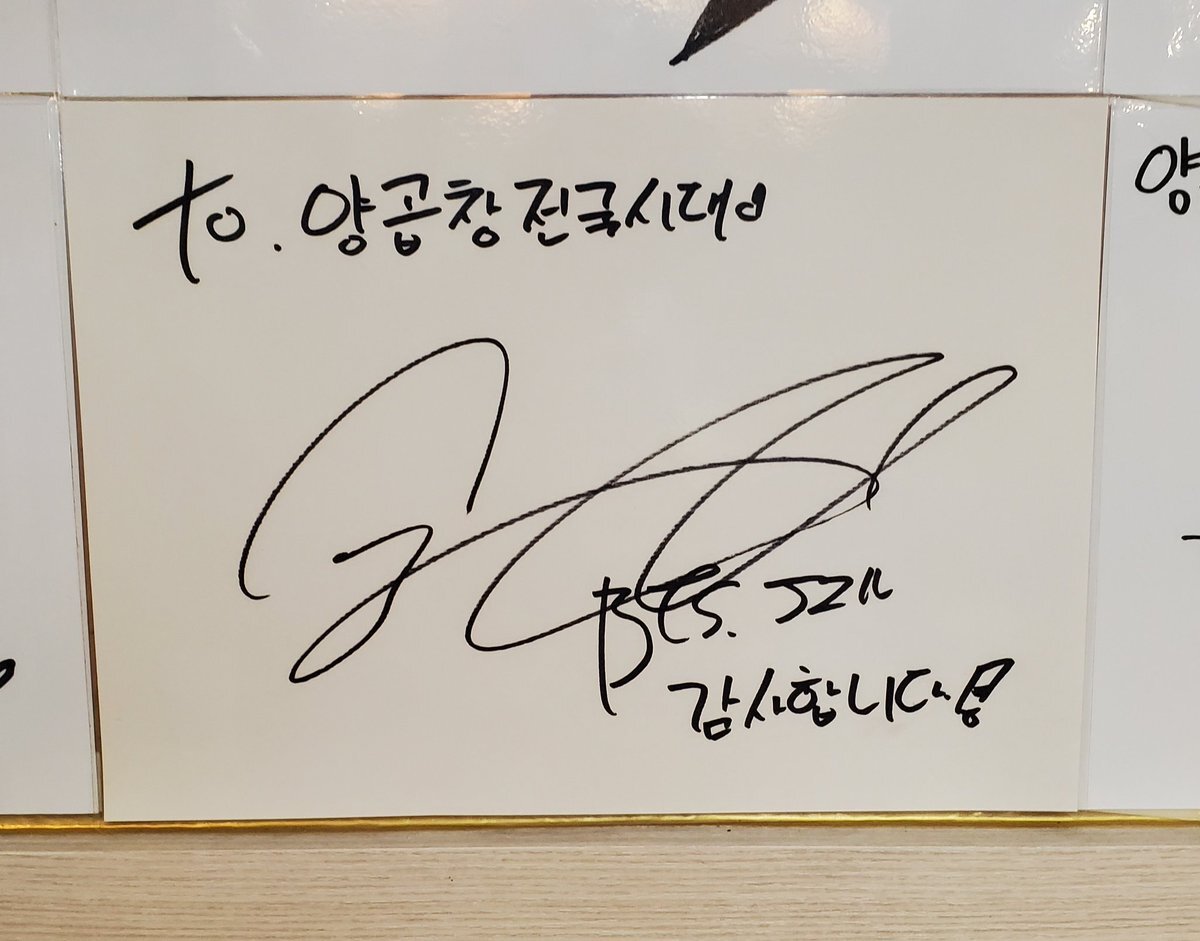 to. 양곱창 전국시대
BTS. 정국
감사합니다!
양